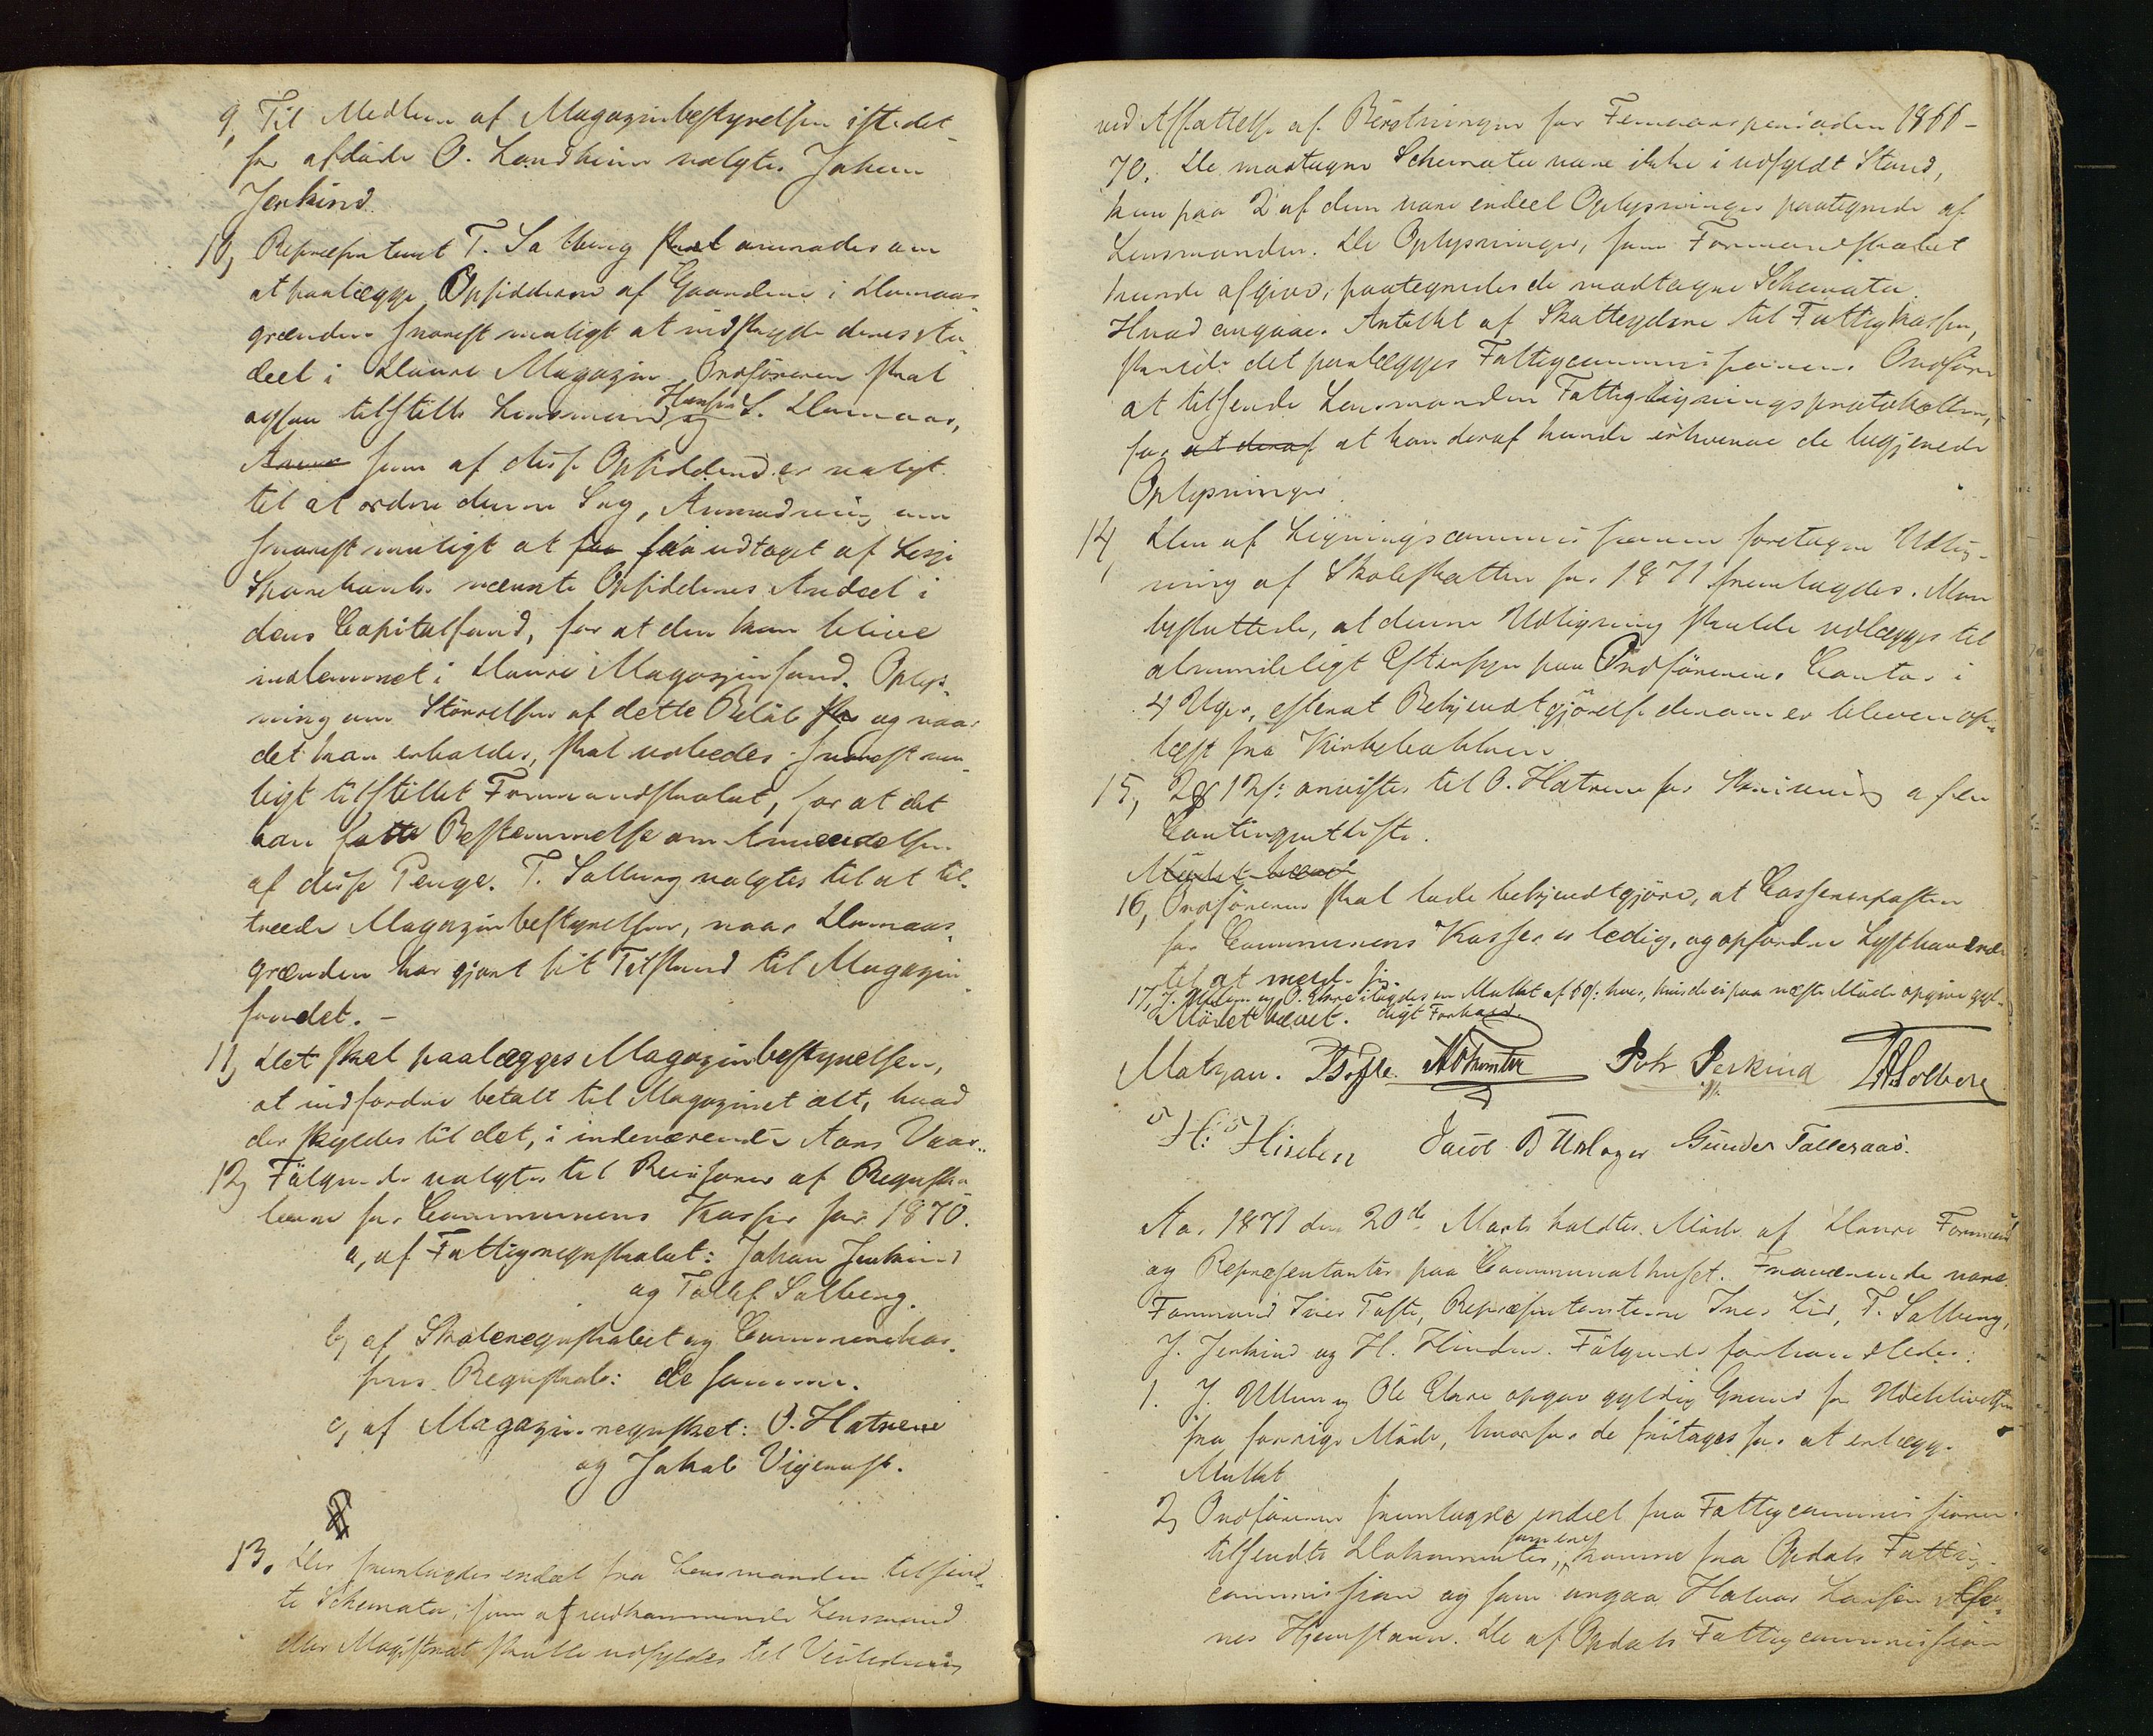 9, Til Medlem af Magazinbestyrelsen istedet
for afdøde O. Landheim valgtes Johan
Jerkind.
10, Repræsentant T. Solberg skal anmodes om
at paalægge Opsidderne af Gaardene i Domaas
grænden snarest muligt at indskyde deres An
deel i Dovre Magazin. Ordføreren skal
ogsaa tilstille Lensmand Hansen og S. Domaas,
som af disse Opsiddere er valgt
til at ordne denne Sag, Anmodning om
snarest muligt at faa udtaget af Lesje
Sparebank nævnte Opsidderes Andeel i
dens Capitalfond, for at den kan blive
indlemmet i Dovre Magazinfond. Oplys-
ning om Størrelsen af dette Beløb og naar
det kan erholdes, skal udbedes snarest mu-
ligt tilstillet Formandskabet, for at det
kan fatte Bestemmelse om Anvendelsen
af disse Penge. T. Solberg valgtes til at til-
træde Magazinbestyrelsen, naar Domaas-
grænden har gjort sit Tilskud til Magazin-
fondet. –
11, Det skal paalægges Magazinbestyrelsen,
at indfordre betalt til Magazinet alt, hvad
der skyldes til det, i indeværende Aars Vaar.
12, Følgende valgtes til Revisorer af Regnska-
berne for Communens Kasser for 1870.
a, af Fattigregnskabet: Johan Jerkind
og Tollef Solberg.
b, af Skoleregnskabet og Communekas-
sens Regnskab: de samme.
c, af Magazinregnskabet: O. Hatrem
og Jakob Vigenust.
13. Der fremlagdes endel fra Lensmanden tilsend-
te Schemata, som af vedkommende Lensmand
eller Magistrat skulle udfyldes til Veiledning
ved Affattelse af Beretninger for Femaarsperioden 1866–
70. De modtagne Schemata vare ikke i udfyldt Stand,
kun paa 2 af dem vare endeel Oplysninger paategnede af
Lensmanden. De Oplysninger, som Formandskabet
kunde afgive, paategnedes de modtagne Schemata.
Hvad angaar Antallet af Skatteydere til Fattigkassen,
skulde det paalægges Fattigcommissionens Ordfører
at tilsende Lensmanden Fattigligningsprotokollen,
for at deraf at han deraf kunde erhverve de begjærede
Oplysninger.
14, Den af Ligningscommissionen foretagne Udlig-
ning af Skoleskatten for 1871 fremlagdes. Man
besluttede, at denne Udligning skulde udlægges til
almindeligt Eftersyn paa Ordførerens Contor i
4 Uger, efterat Bekjendtgjørelse derom er bleven op-
læst fra Kirkebakken.
15, 12 s: anvistes til O. Hatrem for Skrivning af en
Contingentliste.
Mødet hævet
16, Ordføreren skal lade bekjendtgjøre, at Cassererposten
for Communens Kasser er ledig, og opfordre Lysthavende
til at melde sig.
17, J. Ullern og O. Ekre ilagdes en Mulkt af 60 s: hver, hvis de ei paa næste Møde opgive gyl-
digt Forfald.
Mødet hævet.
Matzau. I Tofte Joh Jerkind T Solberg
H: Hinden Jacob Gunder Talleraas.
Aar 1871 den 20de Marts holdtes Møde af Dovre Formænd
og Repræsentanter paa Communalhuset. Fraværende vare
Formand Iver Tofte, Repræsentanterne Iver Lie, T. Solberg,
J. Jerkind og H. Hinden. Følgende forhandledes:
1. J. Ullern og Ole Ekre opgav gyldig Grund for Udeblivelsen
fra forrige Møde, hvorfor de fritages for at erlægge
Mulkt
2, Ordføreren fremlagde endeel fra Fattigcommissionen
tilsendte Dokumenter, komne fra Opdals Fattig-
commission og som angaa Halvor Larsen
nes Hjemstavn. De af Opdals Fattigcommission